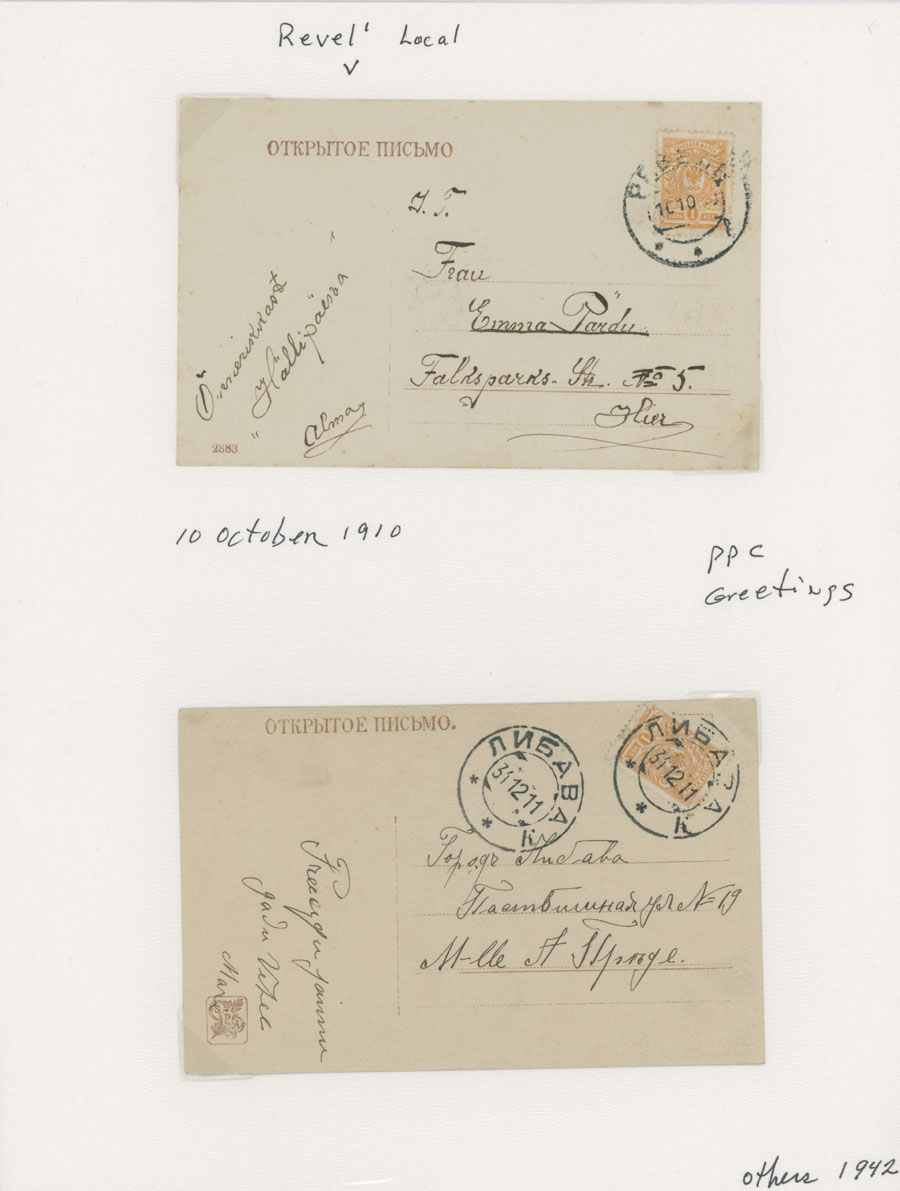 Revel' Local
ОТКРЫТОЕ ПИСЬМО
1
J. T.
Frau
Emma Pärdu
Falksparks-Str. № 5.
Hier
Õnnerikkast
"Hällipäeva"
Alma
2383
10 October 1910
PPC
Greetings
ОТКРЫТОЕ ПИСЬМО.
ЛИБАВА
31 12 11
К
ЛИБАВА
31 12 11
К
Городъ Либава
Пастбишная ул № 19
M-lle А
Preezigu jaunu
gadu
others 1942